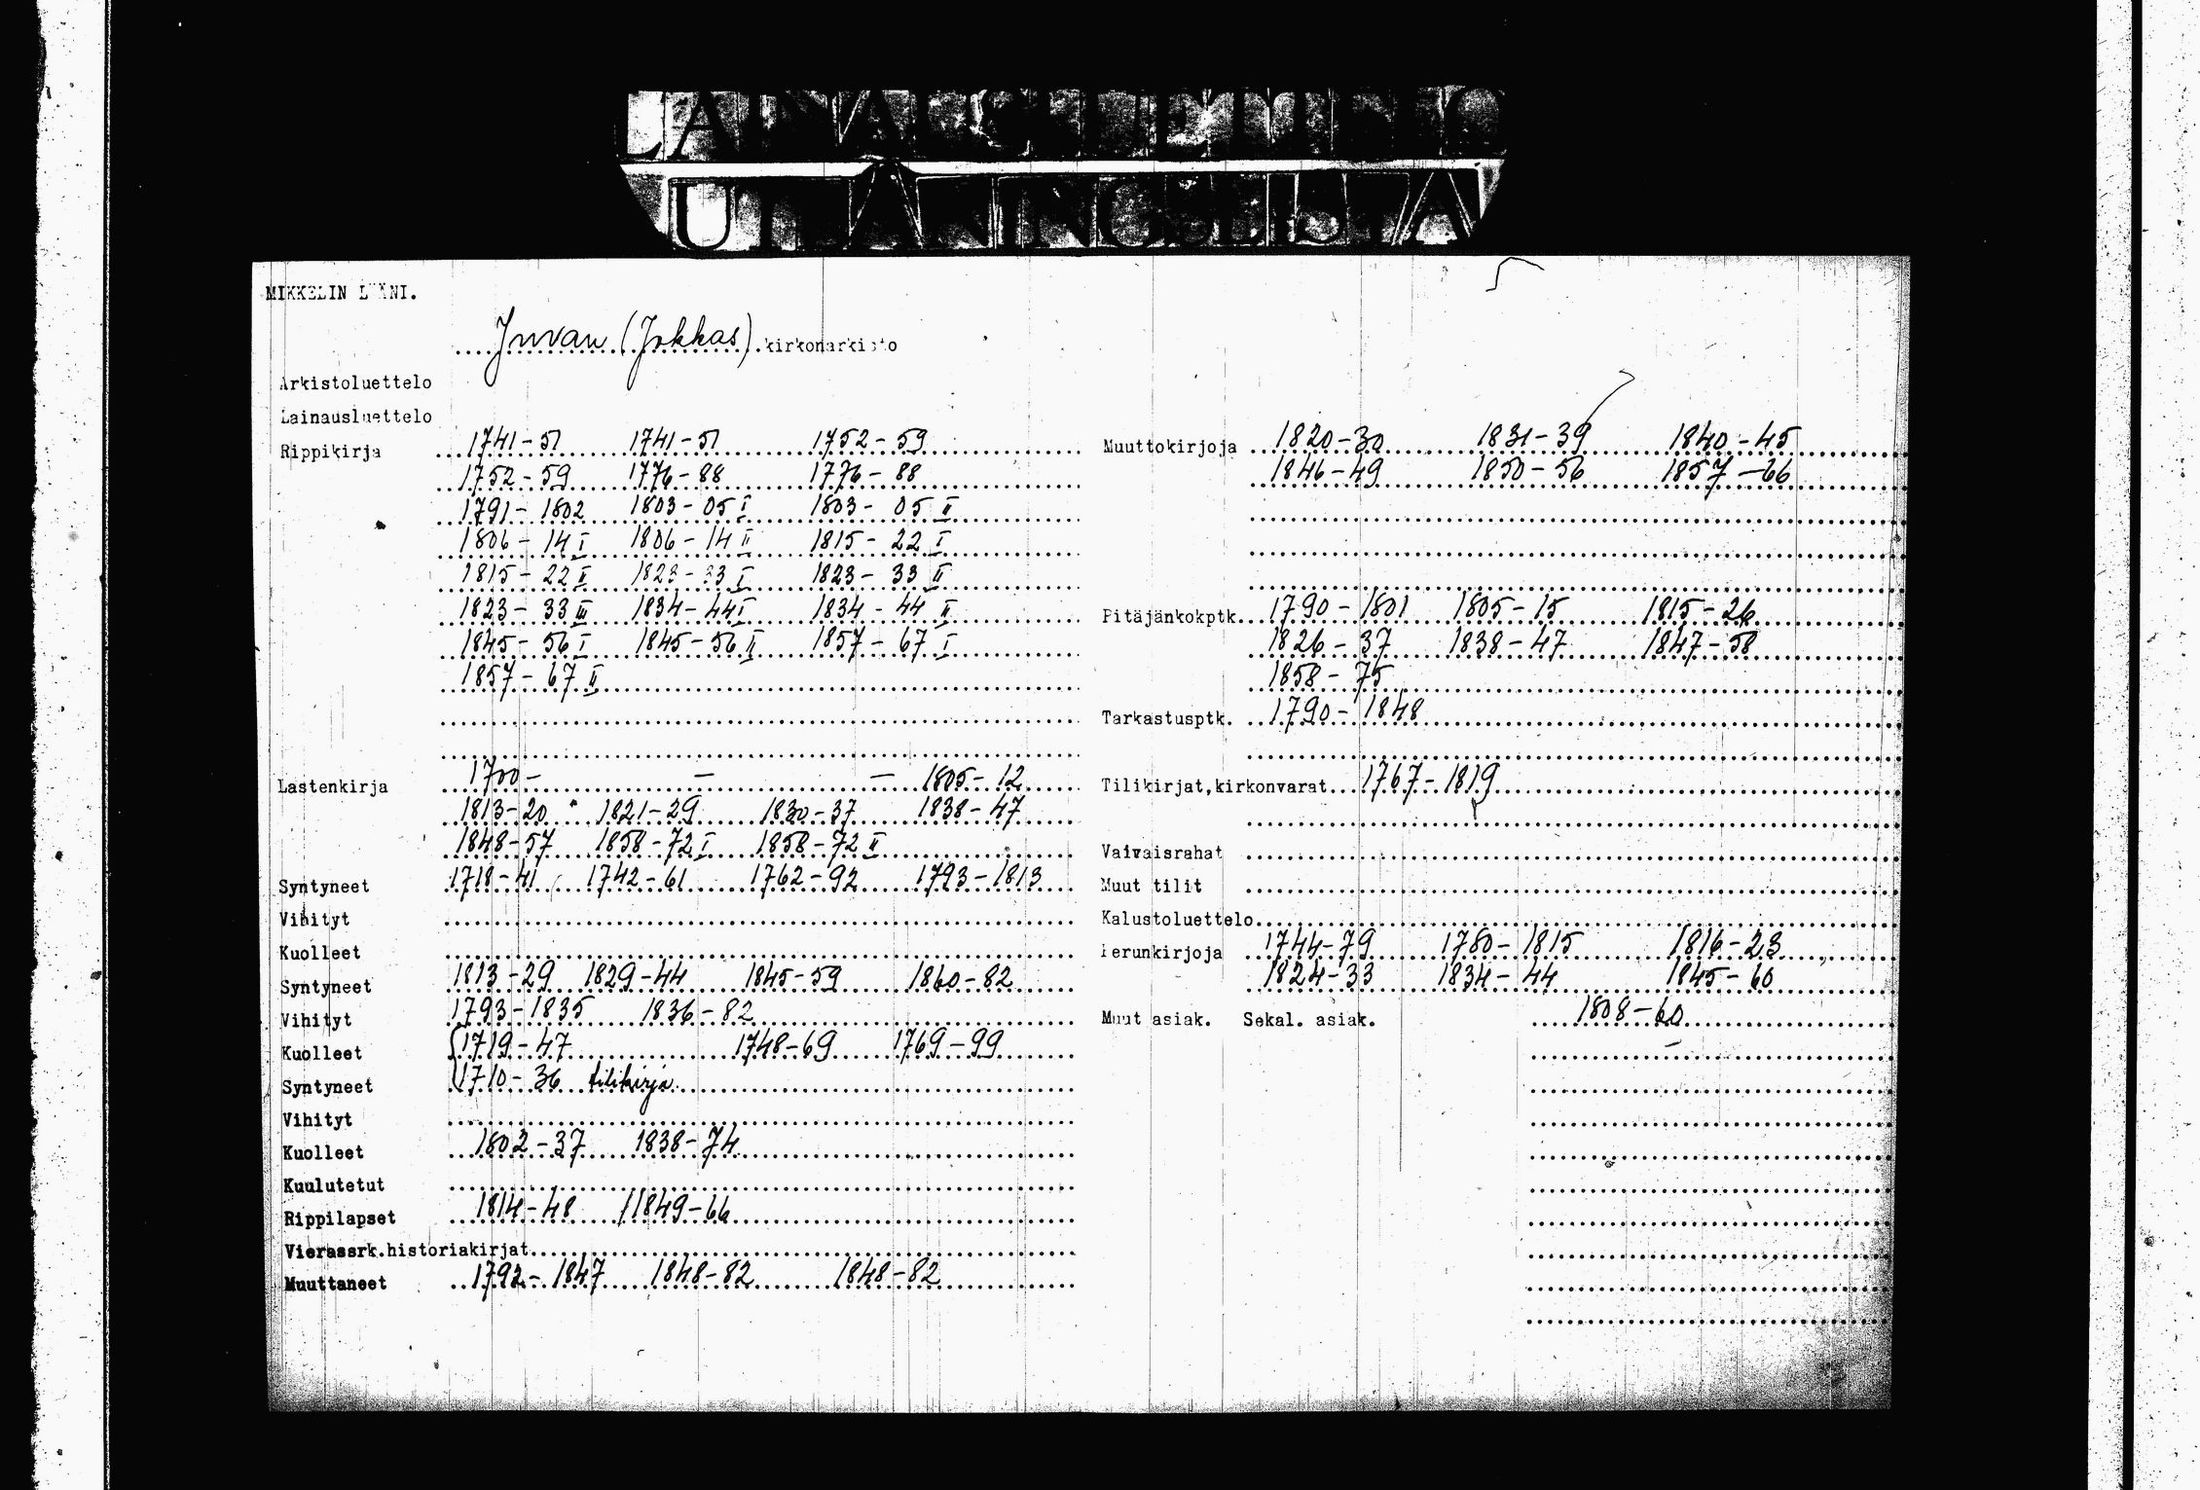 LAINAUSLUETTELO
UTLÅNINGSLISTA
MIKKELIN LÄÄNI.
Juvan (Jokkas) kirkonarkisto
Arkistoluettelo
Lainausluettelo
Rippikirja 1741-51 1741-51 1752-59
1752-59 1776-88 1776-88
1791-1802 1803-05 I 1803-05 II
1806-14 I 1806-14 II 1815-22 I
1815-22 II 1823-33 I 1823-33 II
1823-33 III 1834-44 I 1834-44 II
1845-56 I 1845-56 II 1857-67 I
1857-67 II
Lastenkirja 1700- — — 1805-12
1813-20 1821-29 1830-37 1838-47
1848-57 1858-72 I 1858-72 II
Syntyneet 1718-41 1742-61 1762-92 1793-1813
Vihityt
Kuolleet
Syntyneet 1813-29 1829-44 1845-59 1860-82
Vihityt 1793-1835 1836-82
Kuolleet 1719-47 1748-69 1769-99
Syntyneet 1710-36 tilikirja
Vihityt
Kuolleet 1802-37 1838-74
Kuulutetut
Rippilapset 1814-48 1849-66
Vierassrk.historiakirjat
Muuttaneet 1792-1847 1848-82 1848-82
Muuttokirjoja 1820-30 1831-39 1840-45
1846-49 1850-56 1857-66
Pitäjänkokptk. 1790-1801 1805-15 1815-26
1826-37 1838-47 1847-58
1858-75
Tarkastusptk. 1790-1848
Tilikirjat,kirkonvarat 1767-1819
Vaivaisrahat
Muut tilit
Kalustoluettelo
Perunkirjoja 1744-79 1780-1815 1816-23
1824-33 1834-44 1845-60
Muut asiak. Sekal. asiak. 1808-60